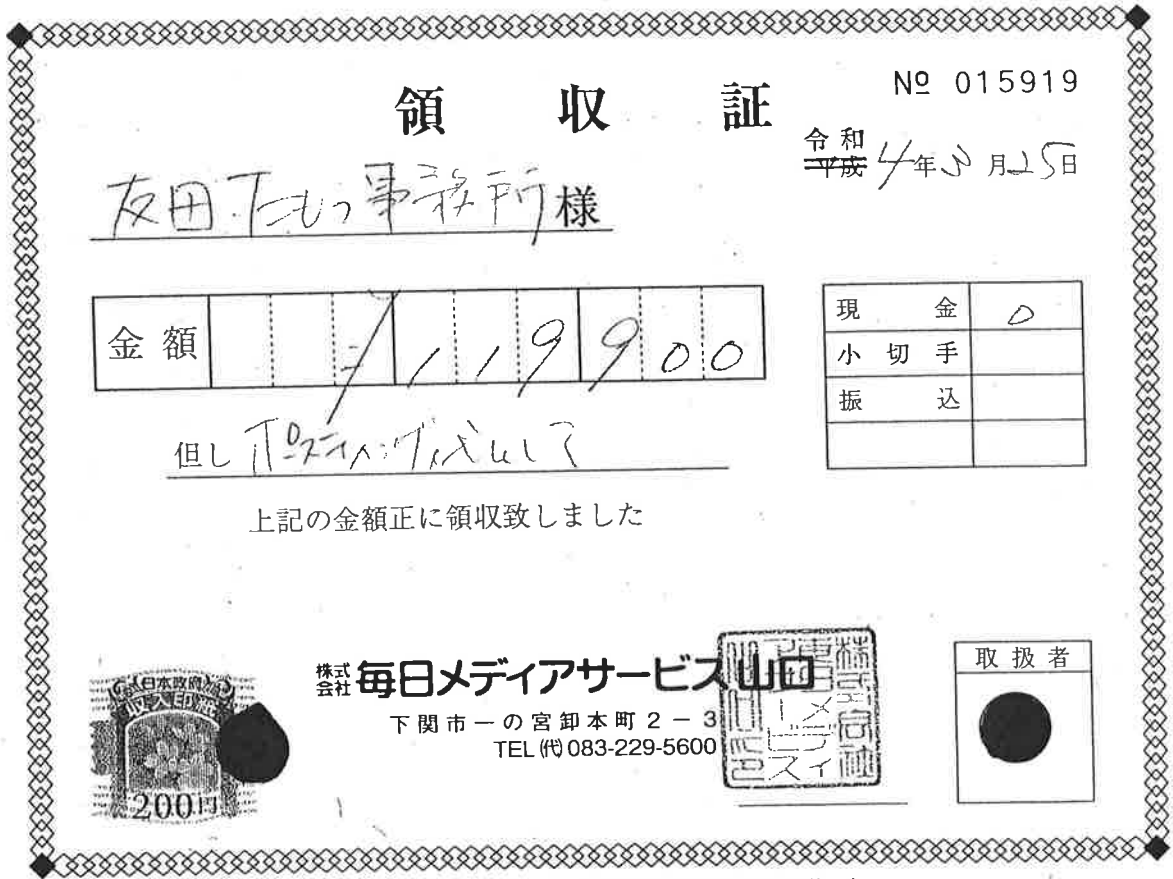 領収証
№ 015919
令和
平成 4年3月25日
友田たもつ事務所様
金額 119900
現金 0
小切手
振込
但しポスティング代として
上記の金額正に領収致しました
日本政府
収入印紙
200円
株式会社 毎日メディアサービス山口
下関市一の宮卸本町2-3
TEL(代)083-229-5600
取扱者